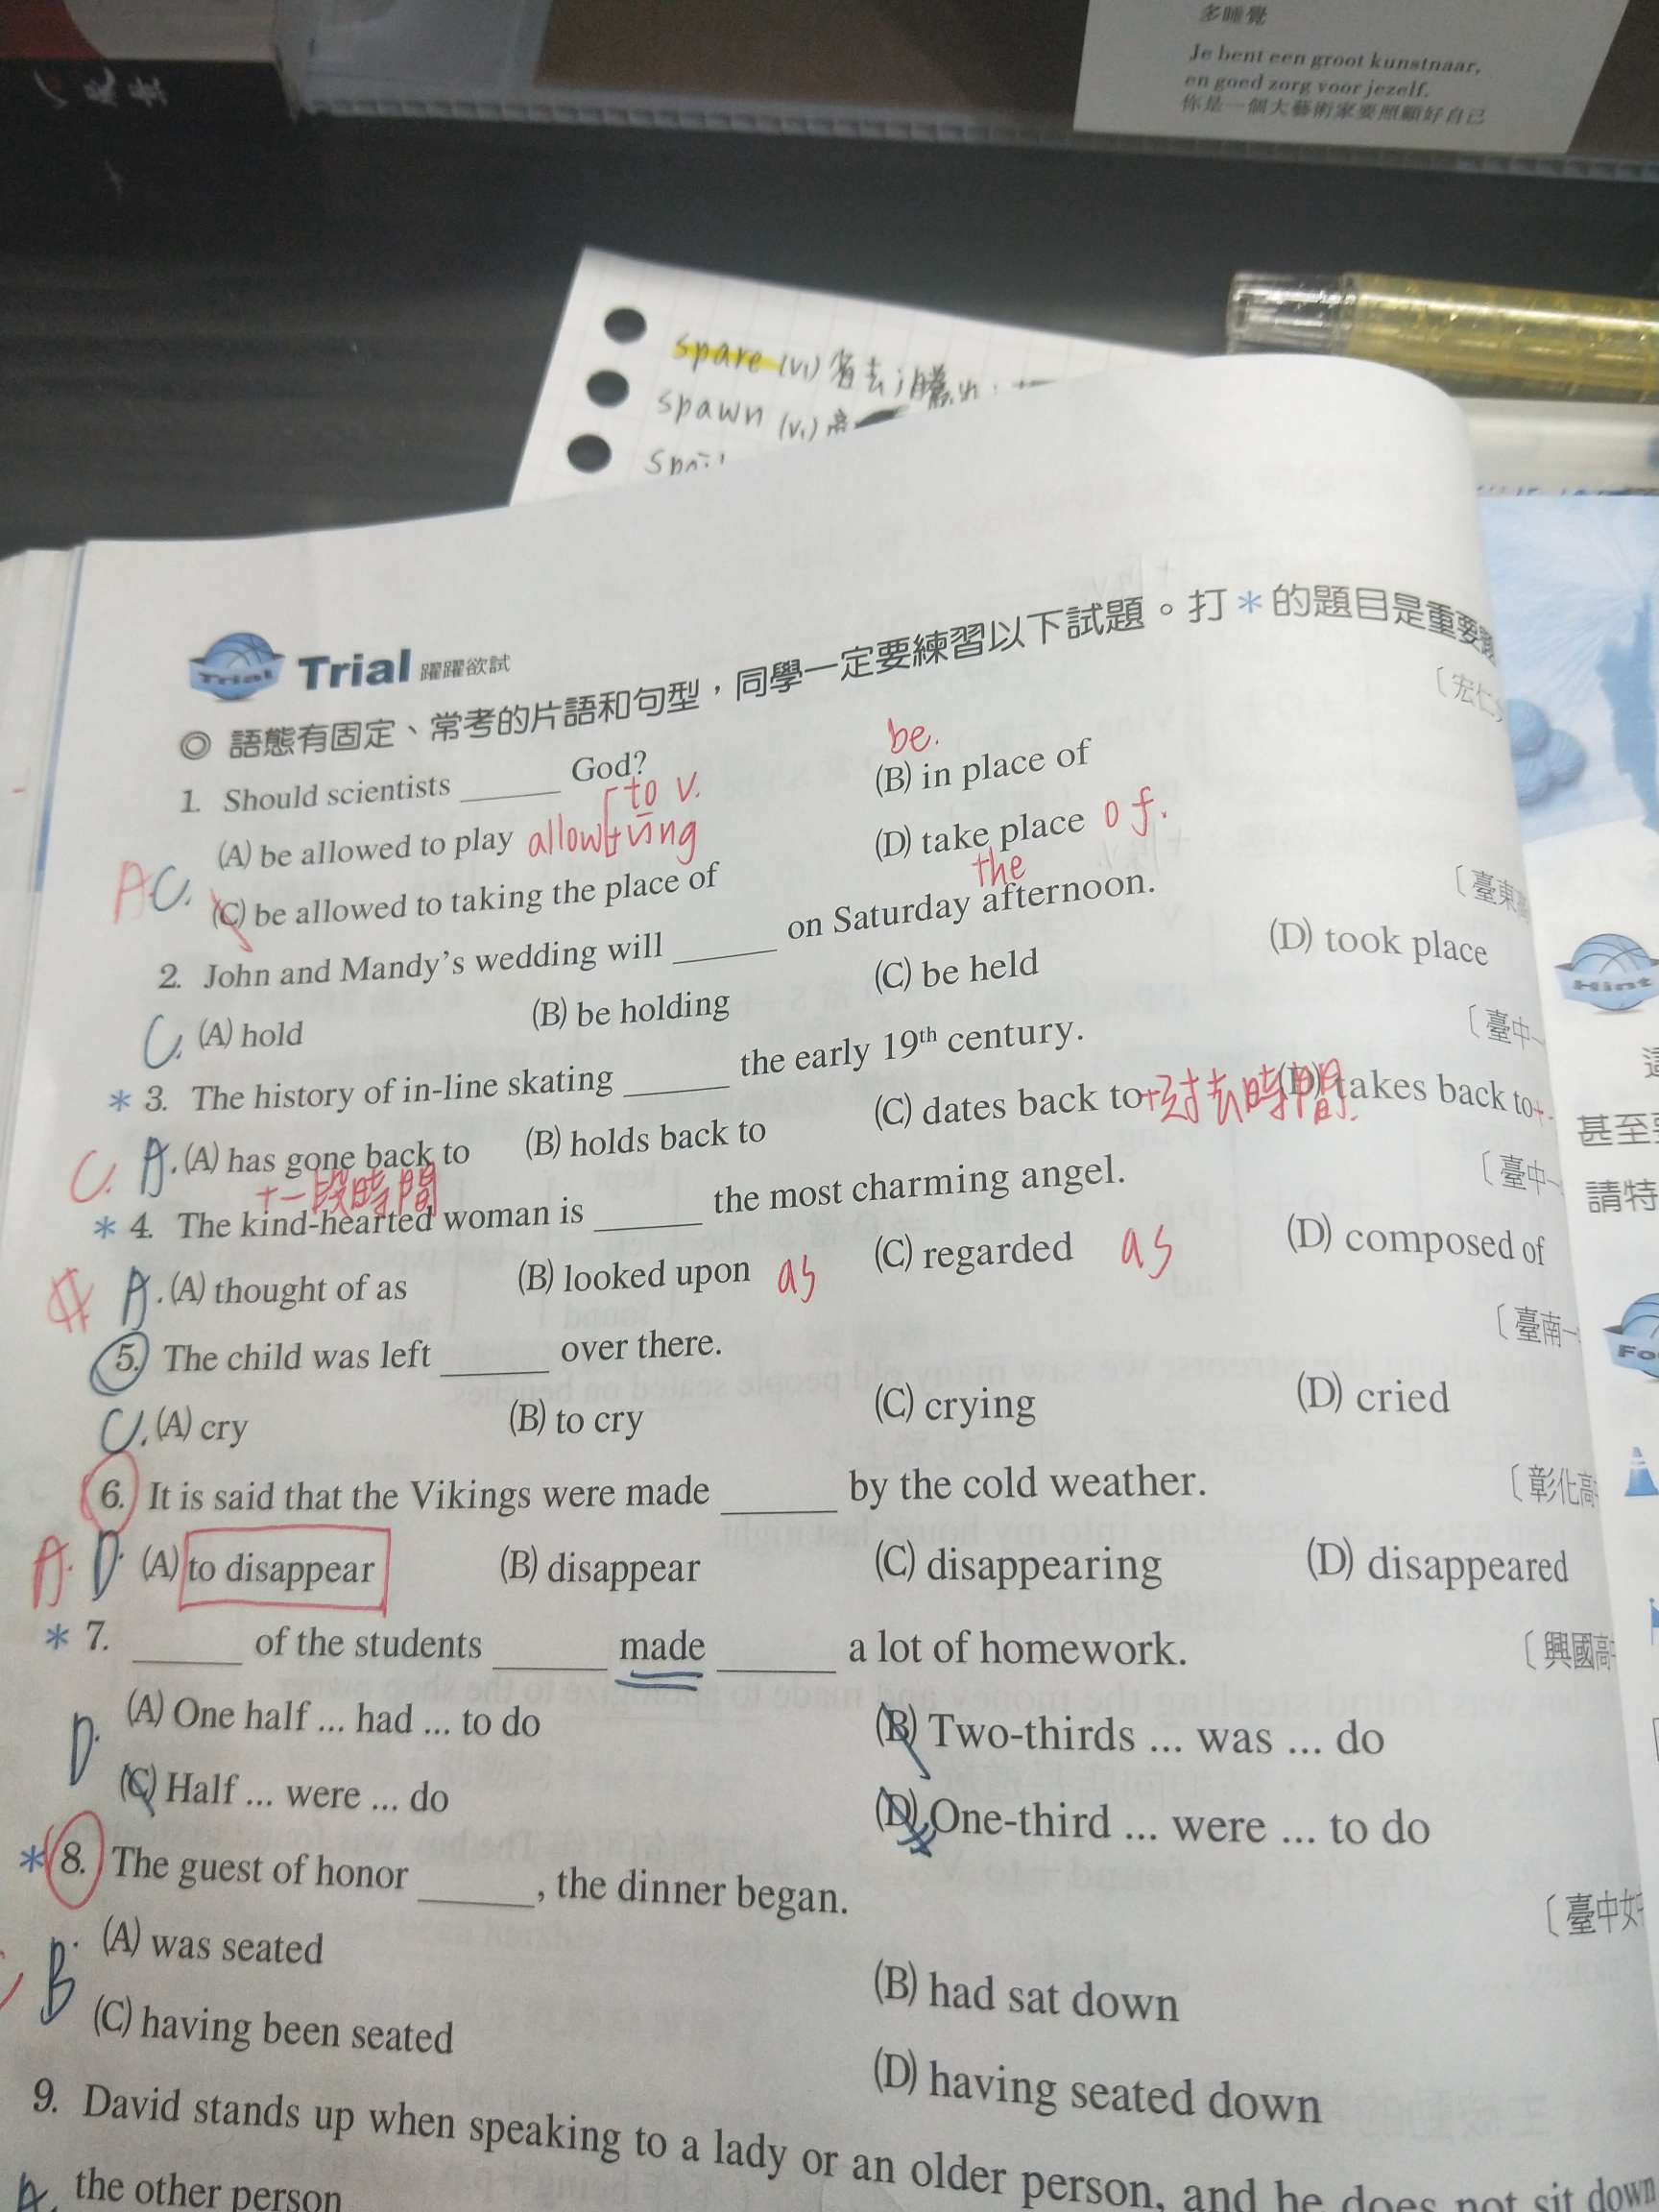 多睡覺
Je bent een groot kunstnaar,
en goed zorg voor jezelf.
你是一個大藝術家要照顧好自己
spare (v.) 省去;騰出
spawn (v.)
Trial Trial 躍躍欲試
◎ 語態有固定、常考的片語和句型,同學一定要練習以下試題。打 * 的題目是重要
〔宏仁
be.
1. Should scientists ______ God?
to V.
(A) be allowed to play allow + Ving
(B) in place of
AC. (C) be allowed to taking the place of
(D) take place of.
the
〔臺東
2. John and Mandy's wedding will ______ on Saturday afternoon.
C. (A) hold (B) be holding (C) be held (D) took place
〔臺中一
* 3. The history of in-line skating ______ the early 19th century.
C. A. (A) has gone back to (B) holds back to (C) dates back to +過去時間. (D) takes back to+
+一段時間
〔臺中一
* 4. The kind-hearted woman is ______ the most charming angel.
A. (A) thought of as (B) looked upon as (C) regarded as (D) composed of
〔臺南一
5. The child was left ______ over there.
C. (A) cry (B) to cry (C) crying (D) cried
6. It is said that the Vikings were made ______ by the cold weather.
〔彰化高
A. D. (A) to disappear (B) disappear (C) disappearing (D) disappeared
* 7. ______ of the students ______ made ______ a lot of homework.
〔興國高
(A) One half ... had ... to do (B) Two-thirds ... was ... do
D. (C) Half ... were ... do (D) One-third ... were ... to do
* 8. The guest of honor ______, the dinner began.
〔臺中女
B. (A) was seated (B) had sat down
(C) having been seated (D) having seated down
9. David stands up when speaking to a lady or an older person, and he does not sit down
the other person
Hint
甚至
請特
Fo